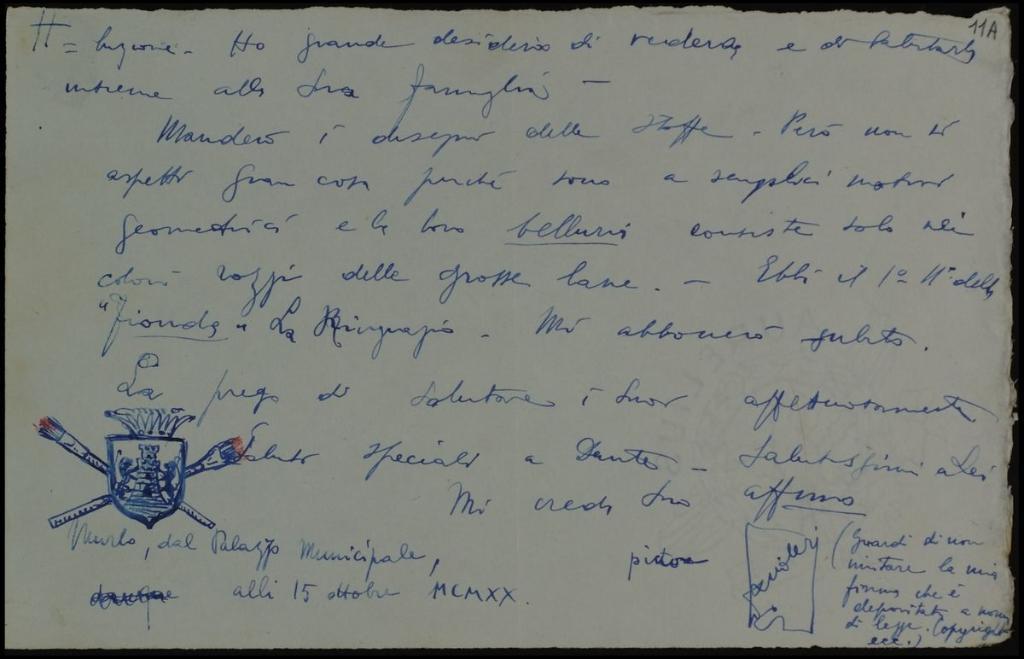 11A
= luzione. Ho grande desiderio di vederla e di salutarla
insieme alla Sua famiglia —
Manderò i disegni delle stoffe. Però non si
aspetti gran cosa perché sono a semplici motivi
geometrici e la loro bellezza consiste solo nei
colori rozzi delle grosse lane. — Ebbi il 1º Nº della
"Fionda" La Ringrazio. Mi abbonerò subito.
La prego di salutare i Suoi affettuosamente
Saluti speciali a Dante — Salutissimi a Lei
Mi creda Suo affmo
Nuoro, dal Palazzo Municipale,
pittore
alli 15 ottobre MCMXX.
(Guardi di non
imitare la mia
firma che è
depositata a norma
di legge. Copyright
ecc.)